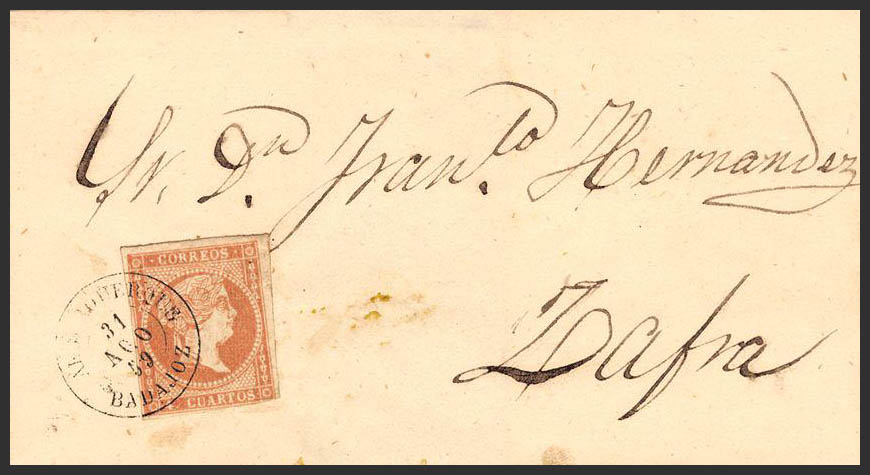 Sr. Dn Franco Hernandez
Zafra
CORREOS
4 CUARTOS
ALBUQUERQUE
31
AGO
59
BADAJOZ